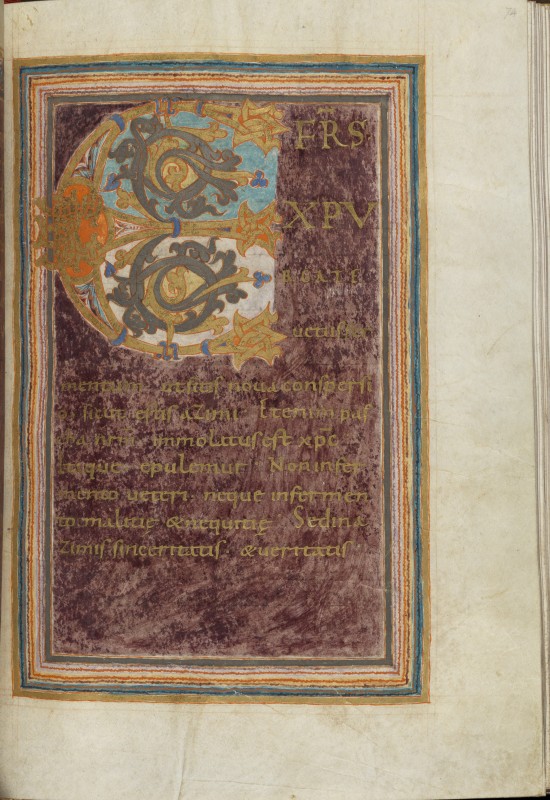 FRS
EXPU
RGATE
uetus fer
mentum ut sitis noua conspersi
o sicut estis azimi Etenim pas
cha nrm immolatus est xpc
Itaque epulemur Non infer
mento ueteri neque infermen
to malitie & nequitię Sed in a
zimis sinceritatis & ueritatis